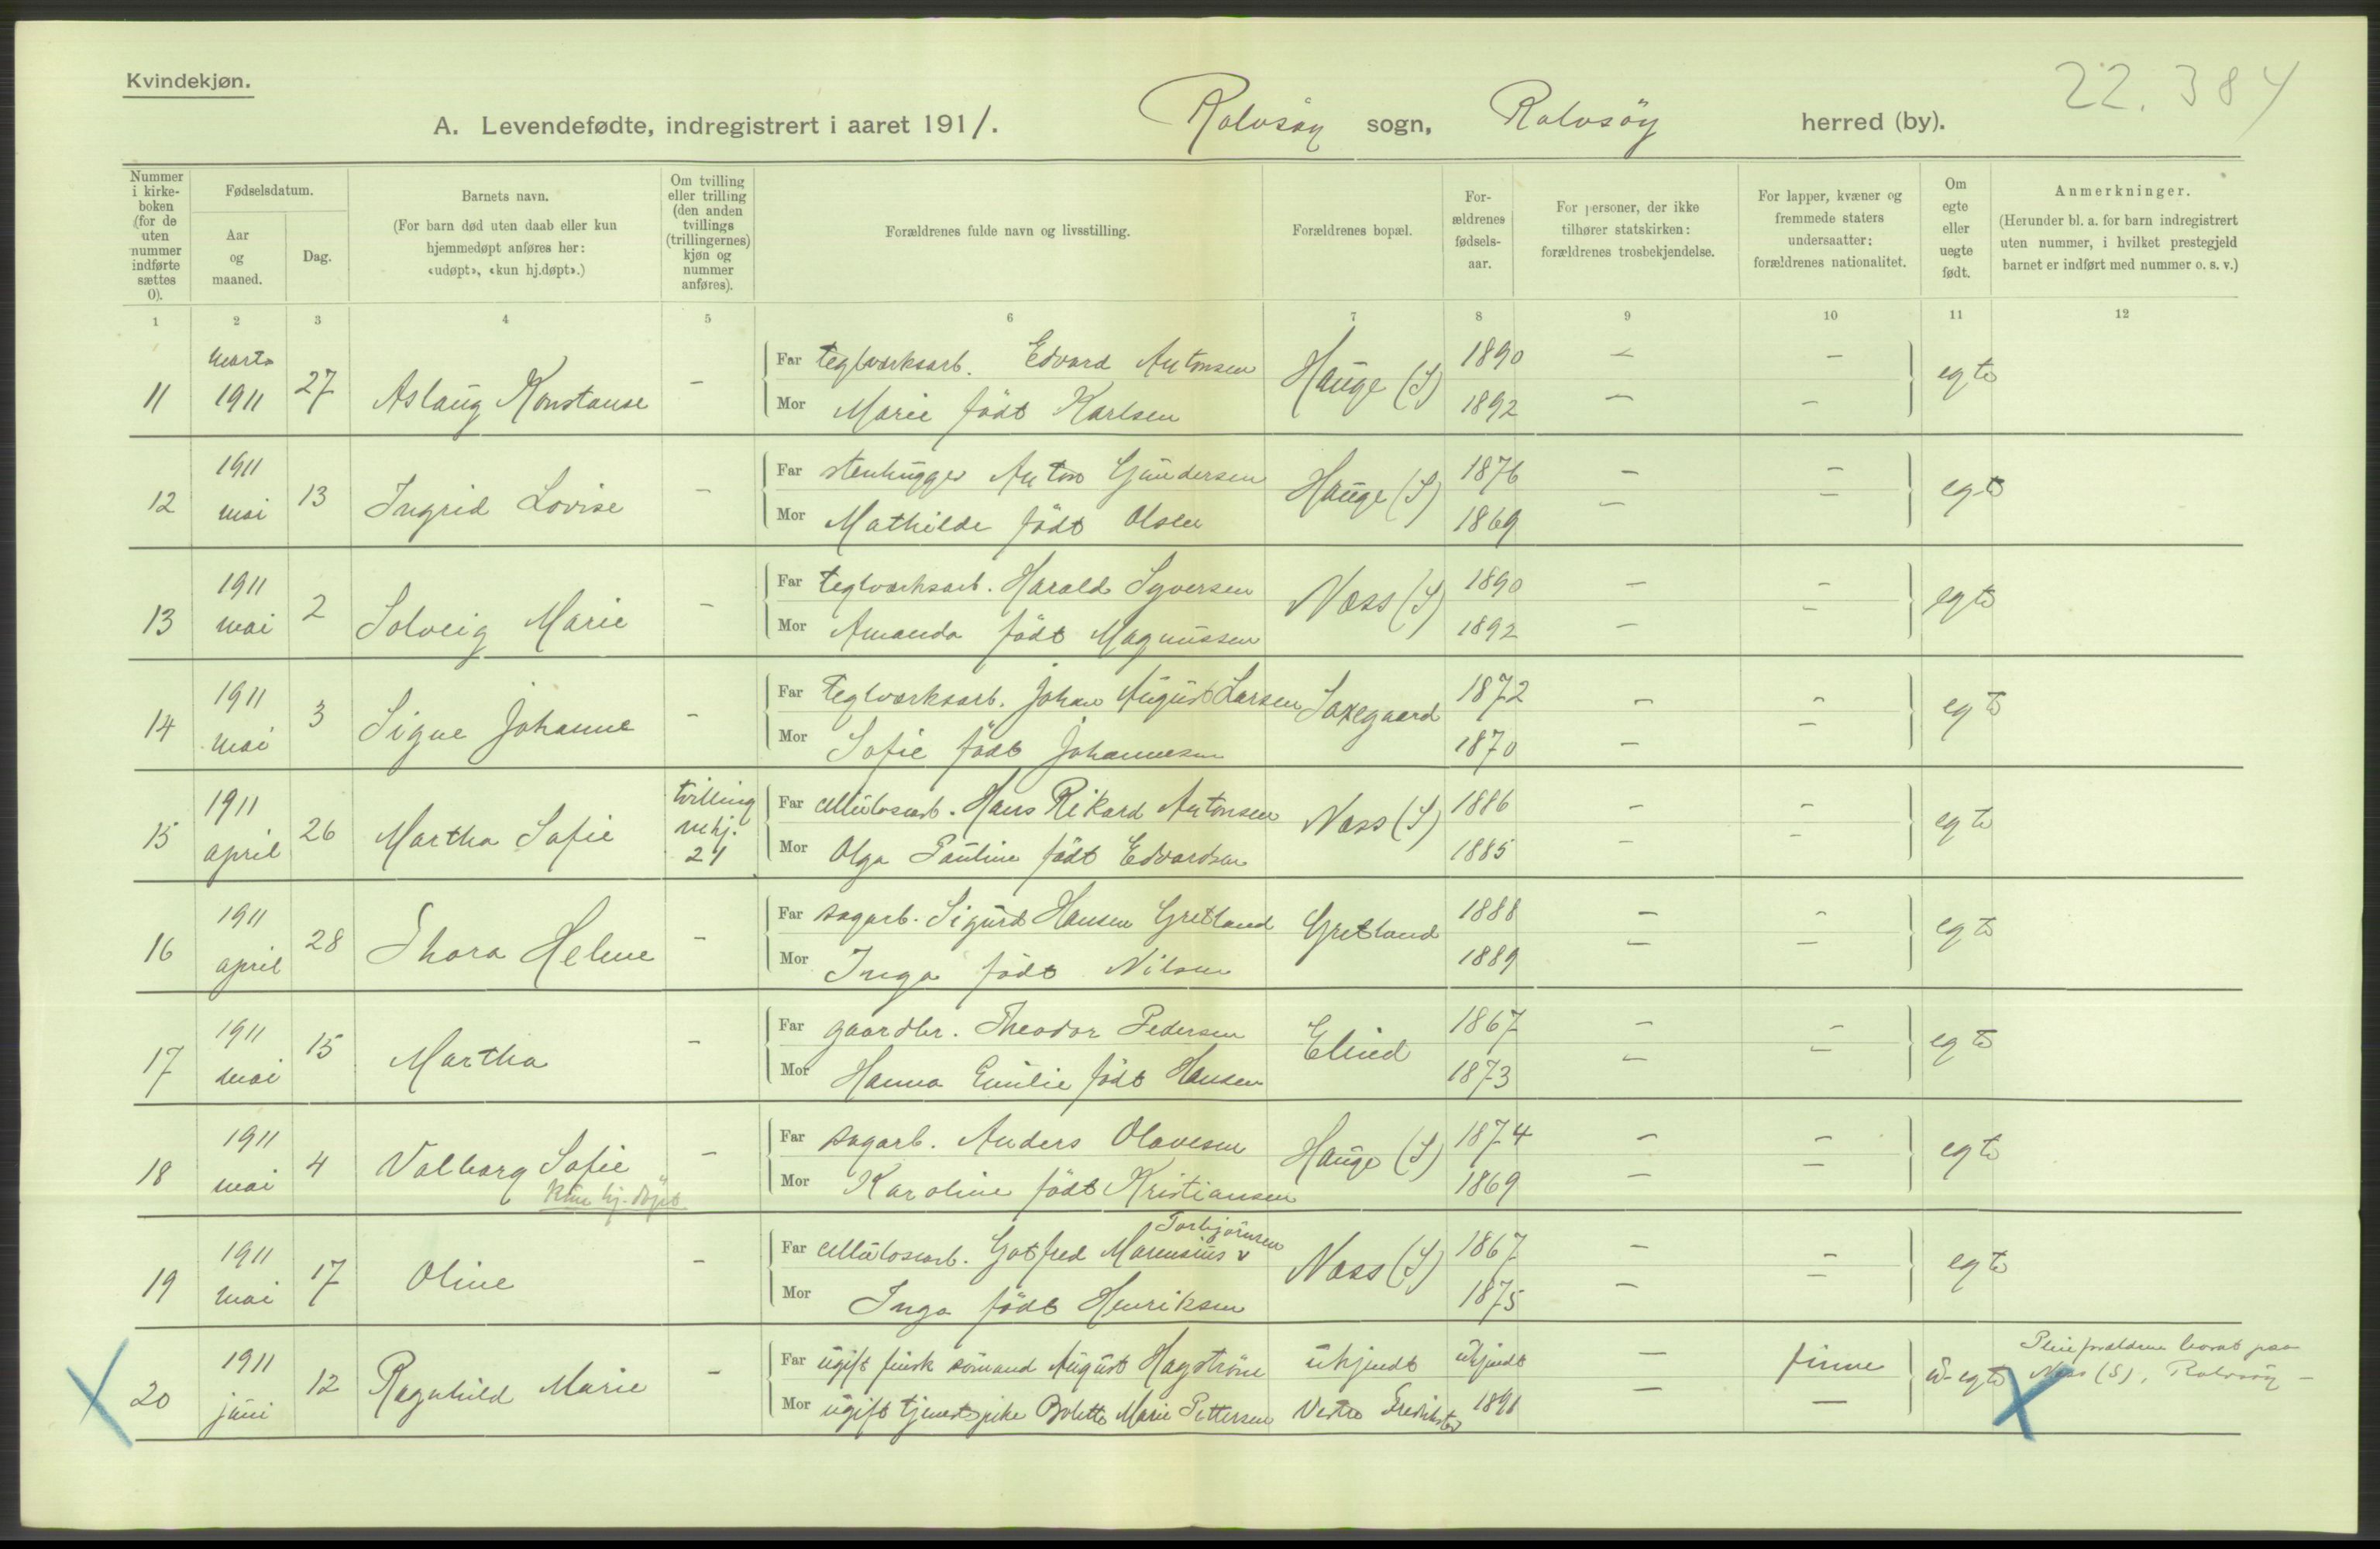 Kvindekjøn.
22.384
A. Levendefødte, indregistrert i aaret 1911. Rolvsøy sogn, Rolvsöy herred (by).
Nummer i kirkeboken (for de uten nummer indførte sættes 0).
Fødselsdatum.
Aar og maaned.
Dag.
Barnets navn.
(For barn død uten daab eller kun hjemmedøpt anføres her: «udøpt», «kun hj.døpt».)
Om tvilling eller trilling (den anden tvillings (trillingernes) kjøn og nummer anføres).
Forældrenes fulde navn og livsstilling.
Forældrenes bopæl.
Forældrenes fødselsaar.
For personer, der ikke tilhører statskirken: forældrenes trosbekjendelse.
For lapper, kvæner og fremmede staters undersaatter: forældrenes nationalitet.
Om egte eller uegte født.
Anmerkninger.
(Herunder bl. a. for barn indregistrert uten nummer, i hvilket prestegjeld barnet er indført med nummer o. s. v.)
1 2 3 4 5 6 7 8 9 10 11 12
11 marts 1911 27 Aslaug Konstanse - Far teglverksarb. Edvard Antonsen Hauge (S) 1890 - - egte
Mor Marie födt Karlsen 1892 - -
12 1911 mai 13 Ingrid Lovise - Far stenhugger Anton Gundersen Hauge (S) 1876 - - egte
Mor Mathilde födt Olsen 1869 - -
13 1911 mai 2 Solveig Marie - Far teglverksarb. Harald Syversen Næss (S) 1890 - - egte
Mor Amanda födt Magnussen 1892 - -
14 1911 mai 3 Signe Johanne - Far teglverksarb. Johan August Larsen Saxegaard 1872 - - egte
Mor Sofie födt Johannesen 1870 - -
15 1911 april 26 Martha Sofie tvilling m hj. 21 Far cellulosearb. Hans Rikard Antonsen Næss (S) 1886 - - egte
Mor Olga Pauline födt Edvardsen 1885 - -
16 1911 april 28 Thora Helene - Far sagarb. Sigurd Hansen Gretland Gretland 1888 - - egte
Mor Inga födt Nilsen 1889 - -
17 1911 mai 15 Martha - Far gaardbr. Theodor Pedersen Elind 1867 - - egte
Mor Hanna Emilie födt Hansen 1873 - -
18 1911 mai 4 Valborg Sofie - Far sagarb. Anders Olavesen Hauge (S) 1874 - - egte
kun hj. döpt
Mor Karoline födt Kristiansen 1869 - -
Torbjörnsen
19 1911 mai 17 Oline - Far cellulosearb. Gotfred Marensius v Næss (S) 1867 - - egte
Mor Inga födt Henriksen 1875 - -
20 1911 juni 12 Ragnhild Marie - Far ugift finsk sömand August Hagström ukjendt ukjendt - finne u-egte Pleieforældrene boret paa Næss (S), Rolvsöy -
Mor ugift tjenestepike Bolette Marie Pettersen Vestre Fredrikstad 1891 - -